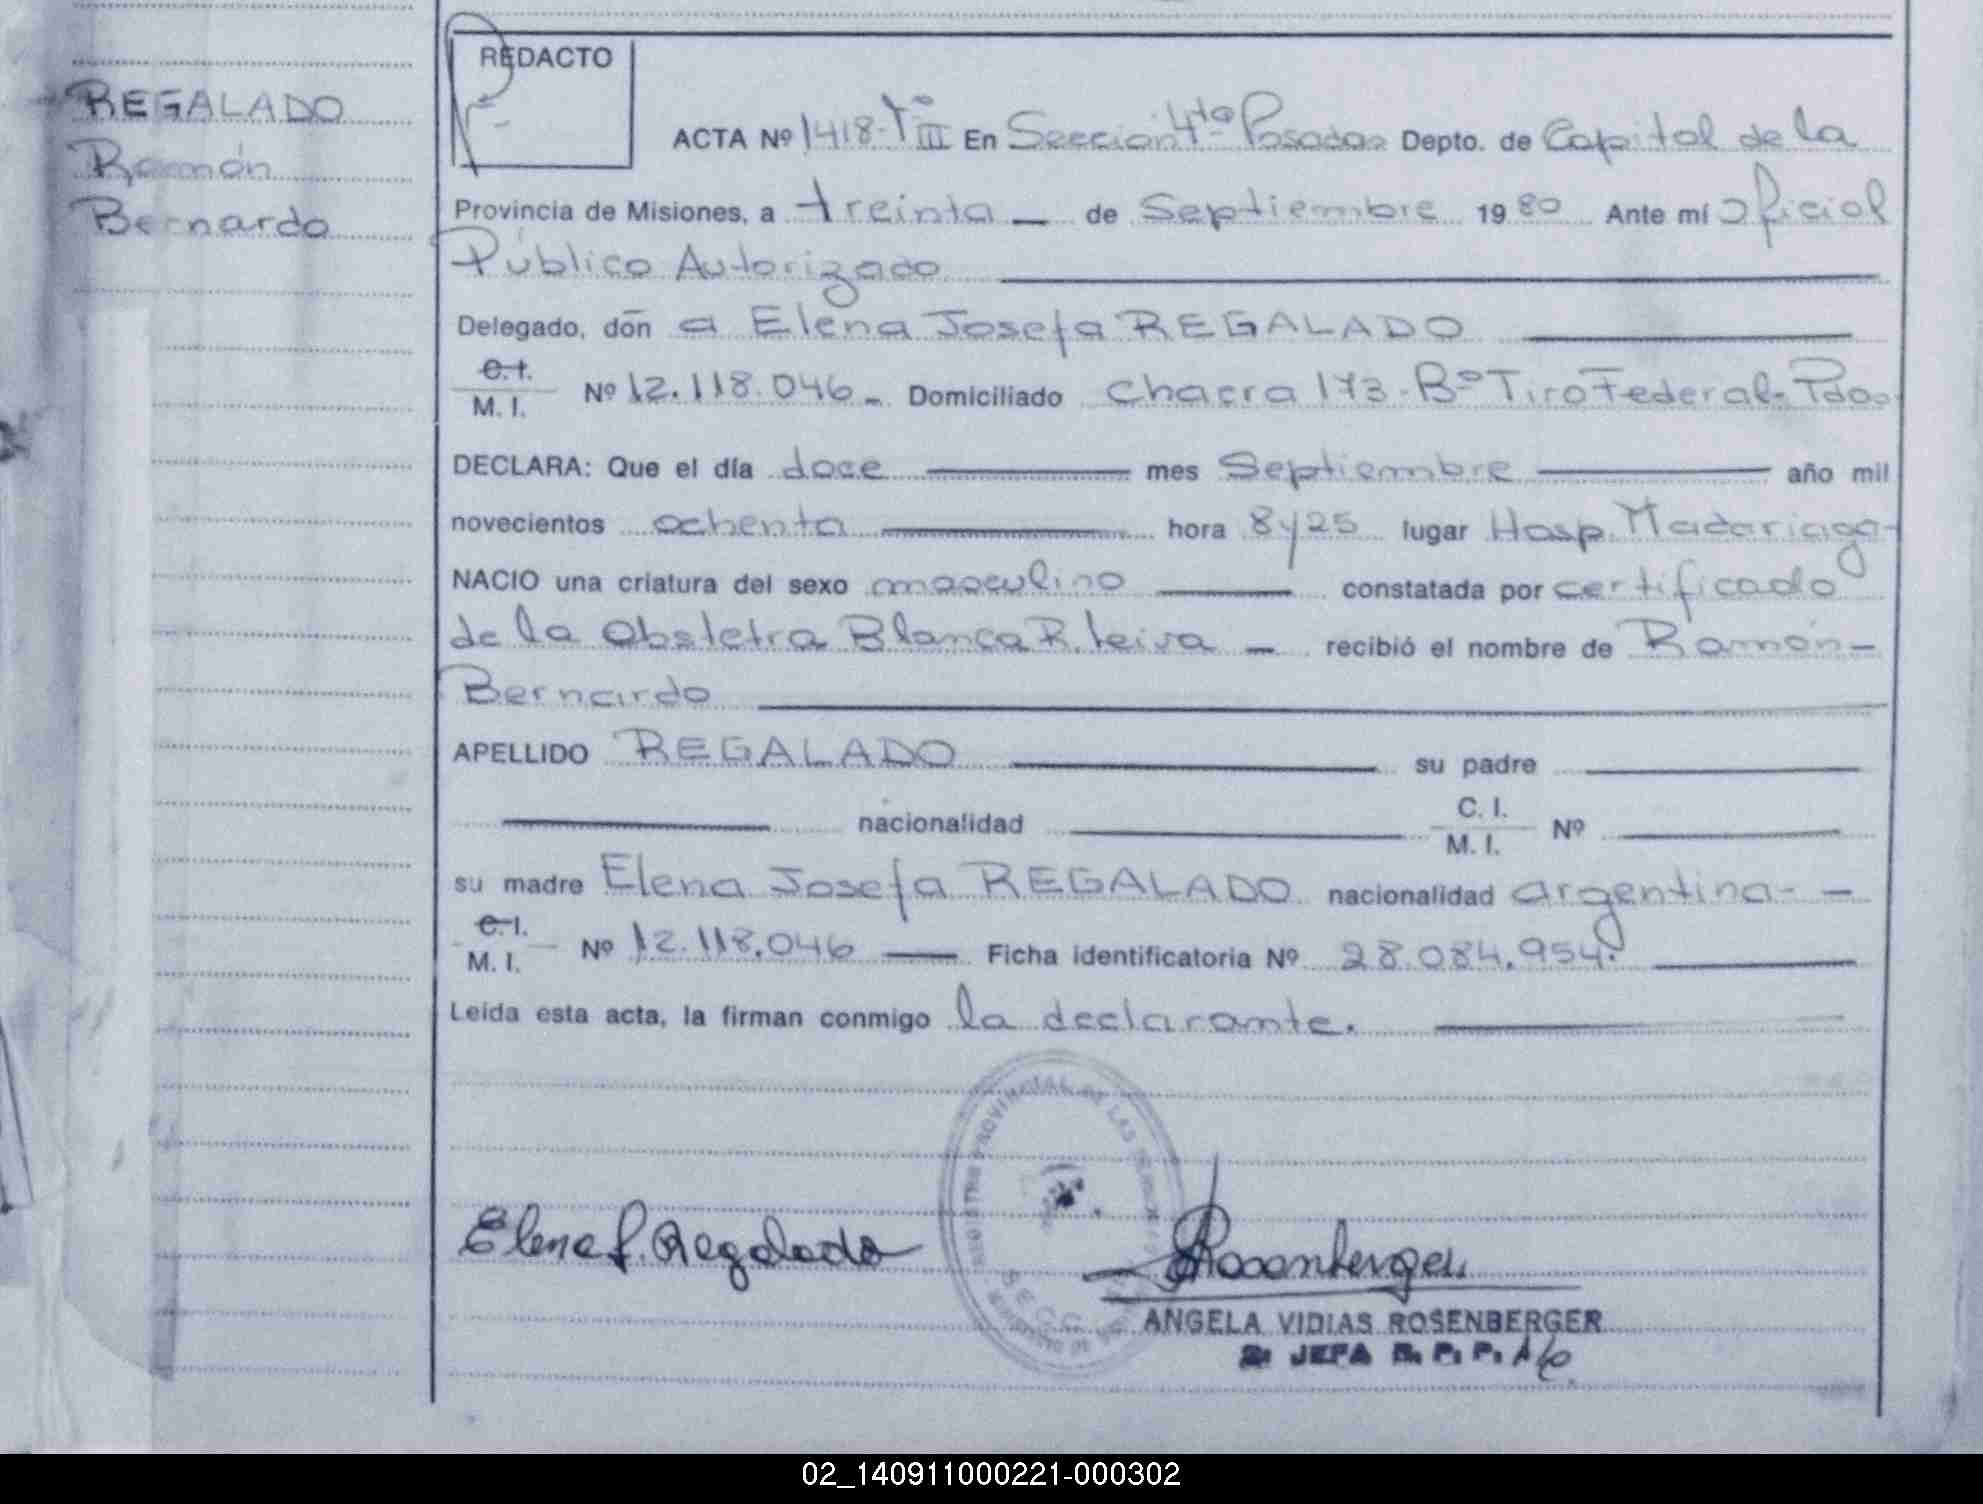 REGALADO
Ramón
Bernardo
REDACTO
ACTA Nº 1418-Tº III En Sección 4ta- Posadas Depto. de Capital de la
Provincia de Misiones, a treinta — de Septiembre 1980 Ante mí Oficial
Público Autorizado
Delegado, don a Elena Josefa REGALADO
C.I.
M. I. Nº 12.118.046- Domiciliado Chacra 173-Bº Tiro Federal-Pdas.
DECLARA: Que el día doce mes Septiembre año mil
novecientos ochenta hora 8y25 lugar Hosp. Madariaga-
NACIO una criatura del sexo masculino constatada por certificado
de la Obstetra Blanca R. Leiva — recibió el nombre de Ramón-
Bernardo
APELLIDO REGALADO su padre
nacionalidad C. I.
M. I. Nº
su madre Elena Josefa REGALADO nacionalidad argentina- -
C.I.
M. I. Nº 12.118.046 — Ficha identificatoria Nº 28.084.954.
Leída esta acta, la firman conmigo la declarante.
PROVINCIAL DE LAS
Elena J. Regalado
Rosenberger
ANGELA VIDIAS ROSENBERGER
JEFA R. P. P.
02_140911000221-000302